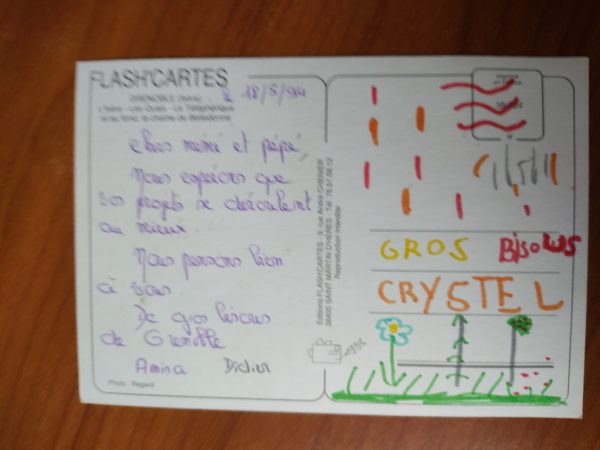 FLASH'CARTES
GRENOBLE (Isère)
L'Isère - Les Quais - Le Téléphérique
et au fond, la chaîne de Belledonne
le 18/5/94
chers mémé et pépé,
Nous espérons que
vos projets se déroulent
au mieux.
Nous pensons bien
à vous.
De gros bisous
de Grenoble
Amina Didier
Photo : Regard
Editions FLASH'CARTES - 9, rue André CHENIER
38400 SAINT MARTIN D'HERES - Tél. 76.51.56.12
Reproduction interdite
GROS BisoUS
CRYSTEL